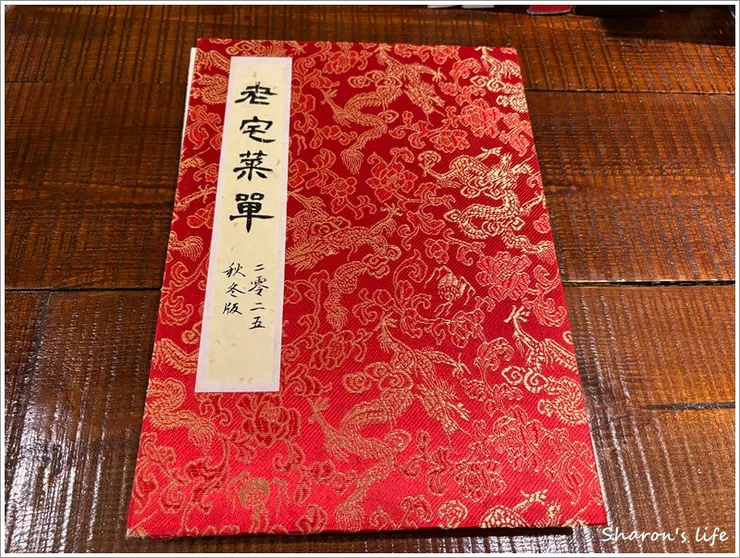 老宅菜單
二零二五
秋冬版
Sharon's life